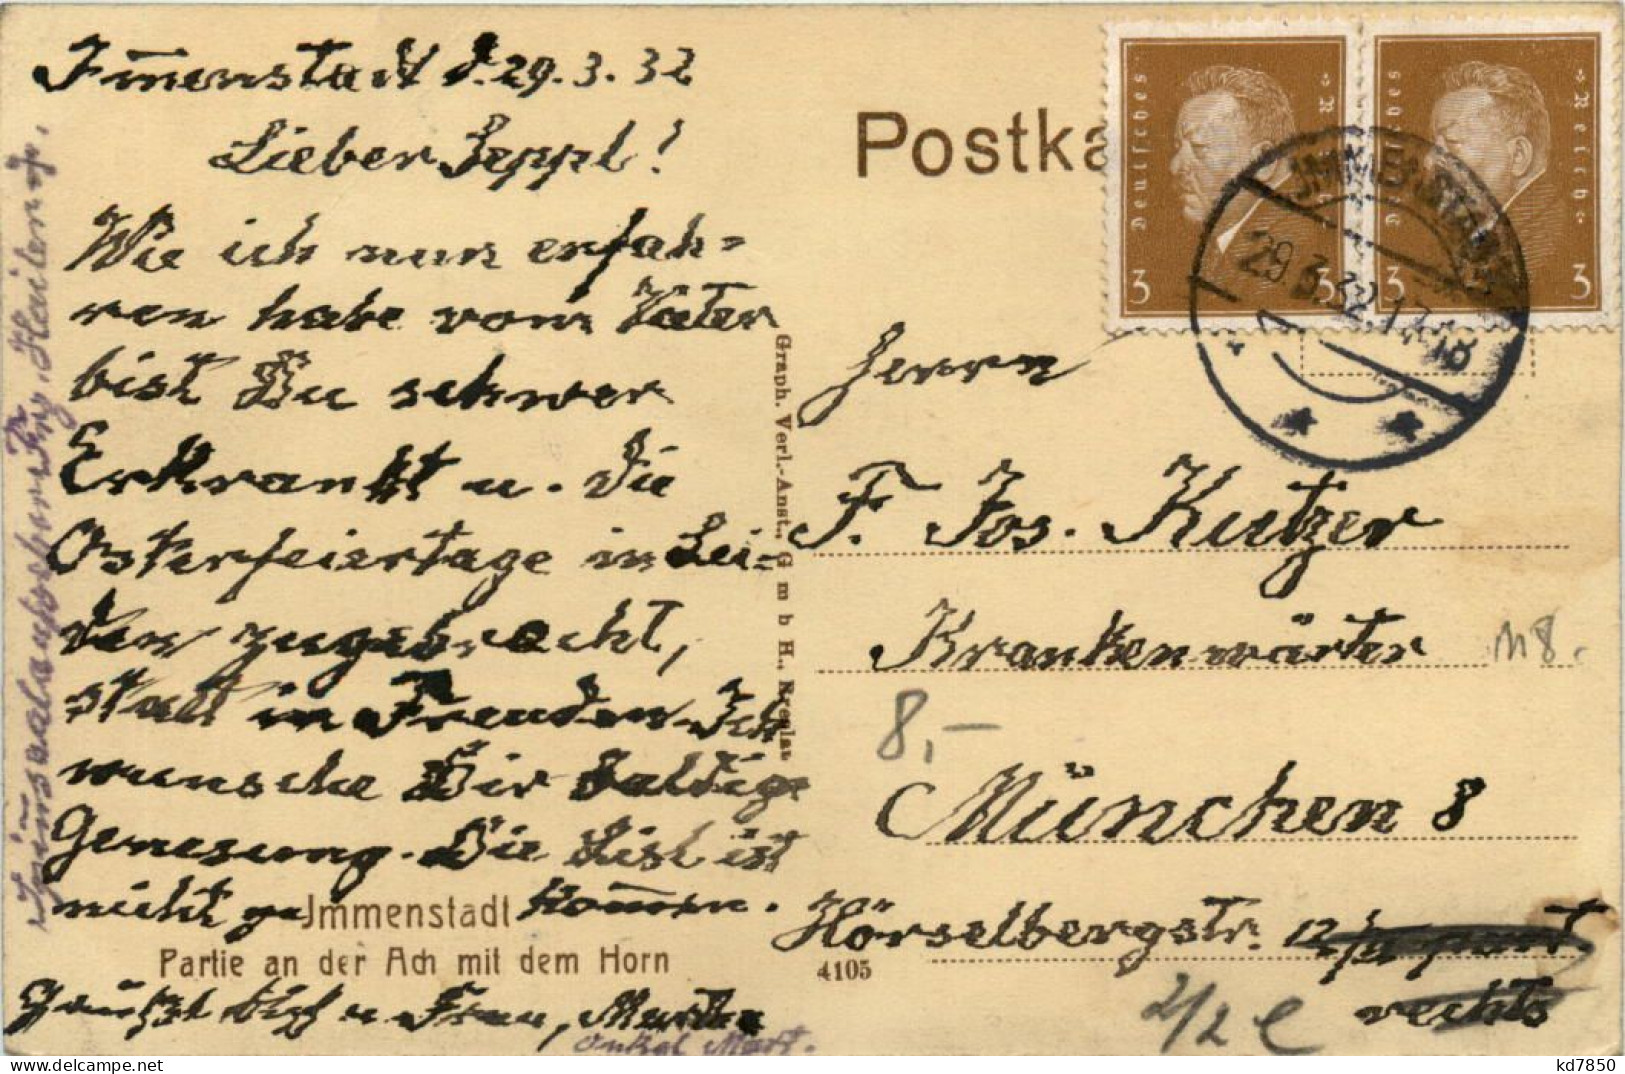 Immenstadt d. 29.3.32
Lieber Seppl!
Wie ich nun erfah=
ren habe vom Vater
bist Du schwer
Erkrankt u. die
Osterfeiertage in Lei=
den zugebracht,
statt in Freuden. Ich
wünsche Dir baldige
Genesung. Die List ist
nicht ge kommen.
Immenstadt
Partie an der Ach mit dem Horn
Grüßt Dich u Frau, Martha
Onkel Mart.
Graph. Verl.-Anst., G m b H., Breslau
4105
Postka
Deutsches Reich
3
3
Deutsches Reich
3
3
IMMENSTADT
29.3.32.17-18
1
Herrn
F. Jos. Kutzer
Krankenwärter
M8.
8,-
München 8
Hörselbergstr. 12/
rechts
2/2 l
kd7850